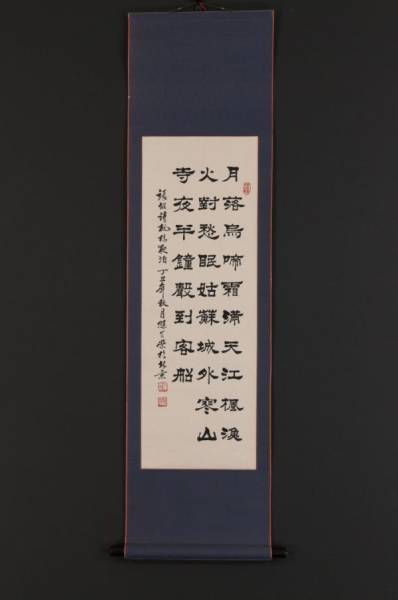 月落烏啼霜滿天江楓漁
火對愁眠姑蘇城外寒山
寺夜半鐘聲到客船
張繼詩楓橋夜泊 丁丑年秋月 於北京